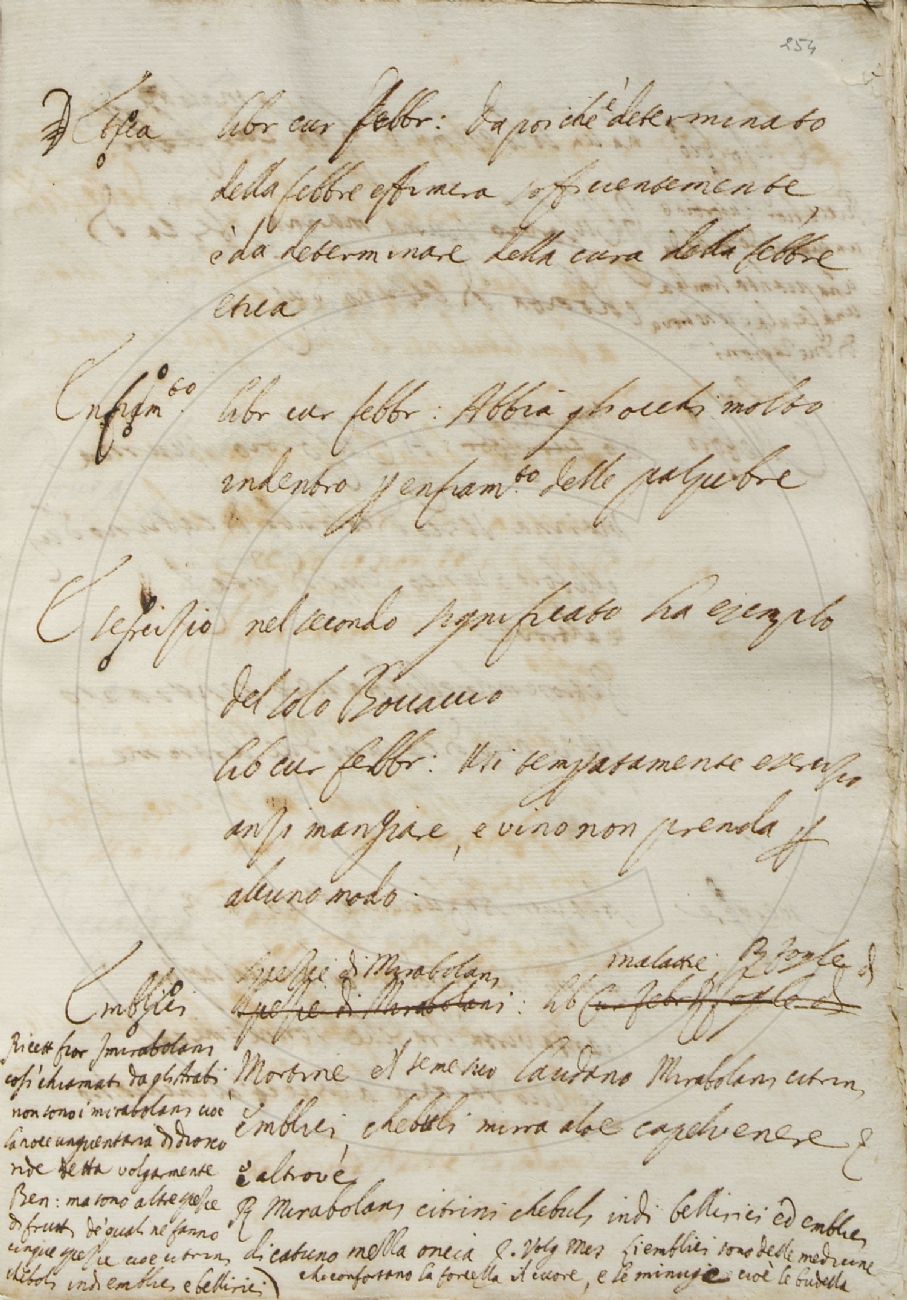 254
Etica libr cur febbr: Da poi ch'è determinato
della febbre effimera sofficientemente,
è da determinare della cura della febbre
etica
Enfiam.to libr cur febbr: Abbia gli occhi molto
indentro p enfiam.to delle palpebre
Esercizio nel secondo significato ha esemplo
del solo Boccaccio
lib cur febbr: Usi temperatamente esercizio
anzi mangiare, e vino non prenda p
alcuno modo.
spezie di Mirabolani malatte: ℞ foglie d
Emblici spezie di Mirabolani: lib cu febr ℞ foglie di
Mortine e 'l seme suo laudano Mirabolani citrini
emblici, chebuli mirra aloe capelvenere
e altrove
℞ Mirabolani citrini chebuli indi bellirici ed emblici
di catuno mezza oncia Volg Mes gli emblici sono delle medicine
che confortano la forcella il cuore, e le minuge cioè le budella
Ricett fior I mirabolani
così chiamati dagli Arabi
non sono i mirabolani cioè
la noce unguentaria di Diosco
ride detta volgarmente
Ben: ma sono altre spezie
di frutti de' quali ne fanno
cinque spezie cioè citrini
cheboli indi emblici e bellirici